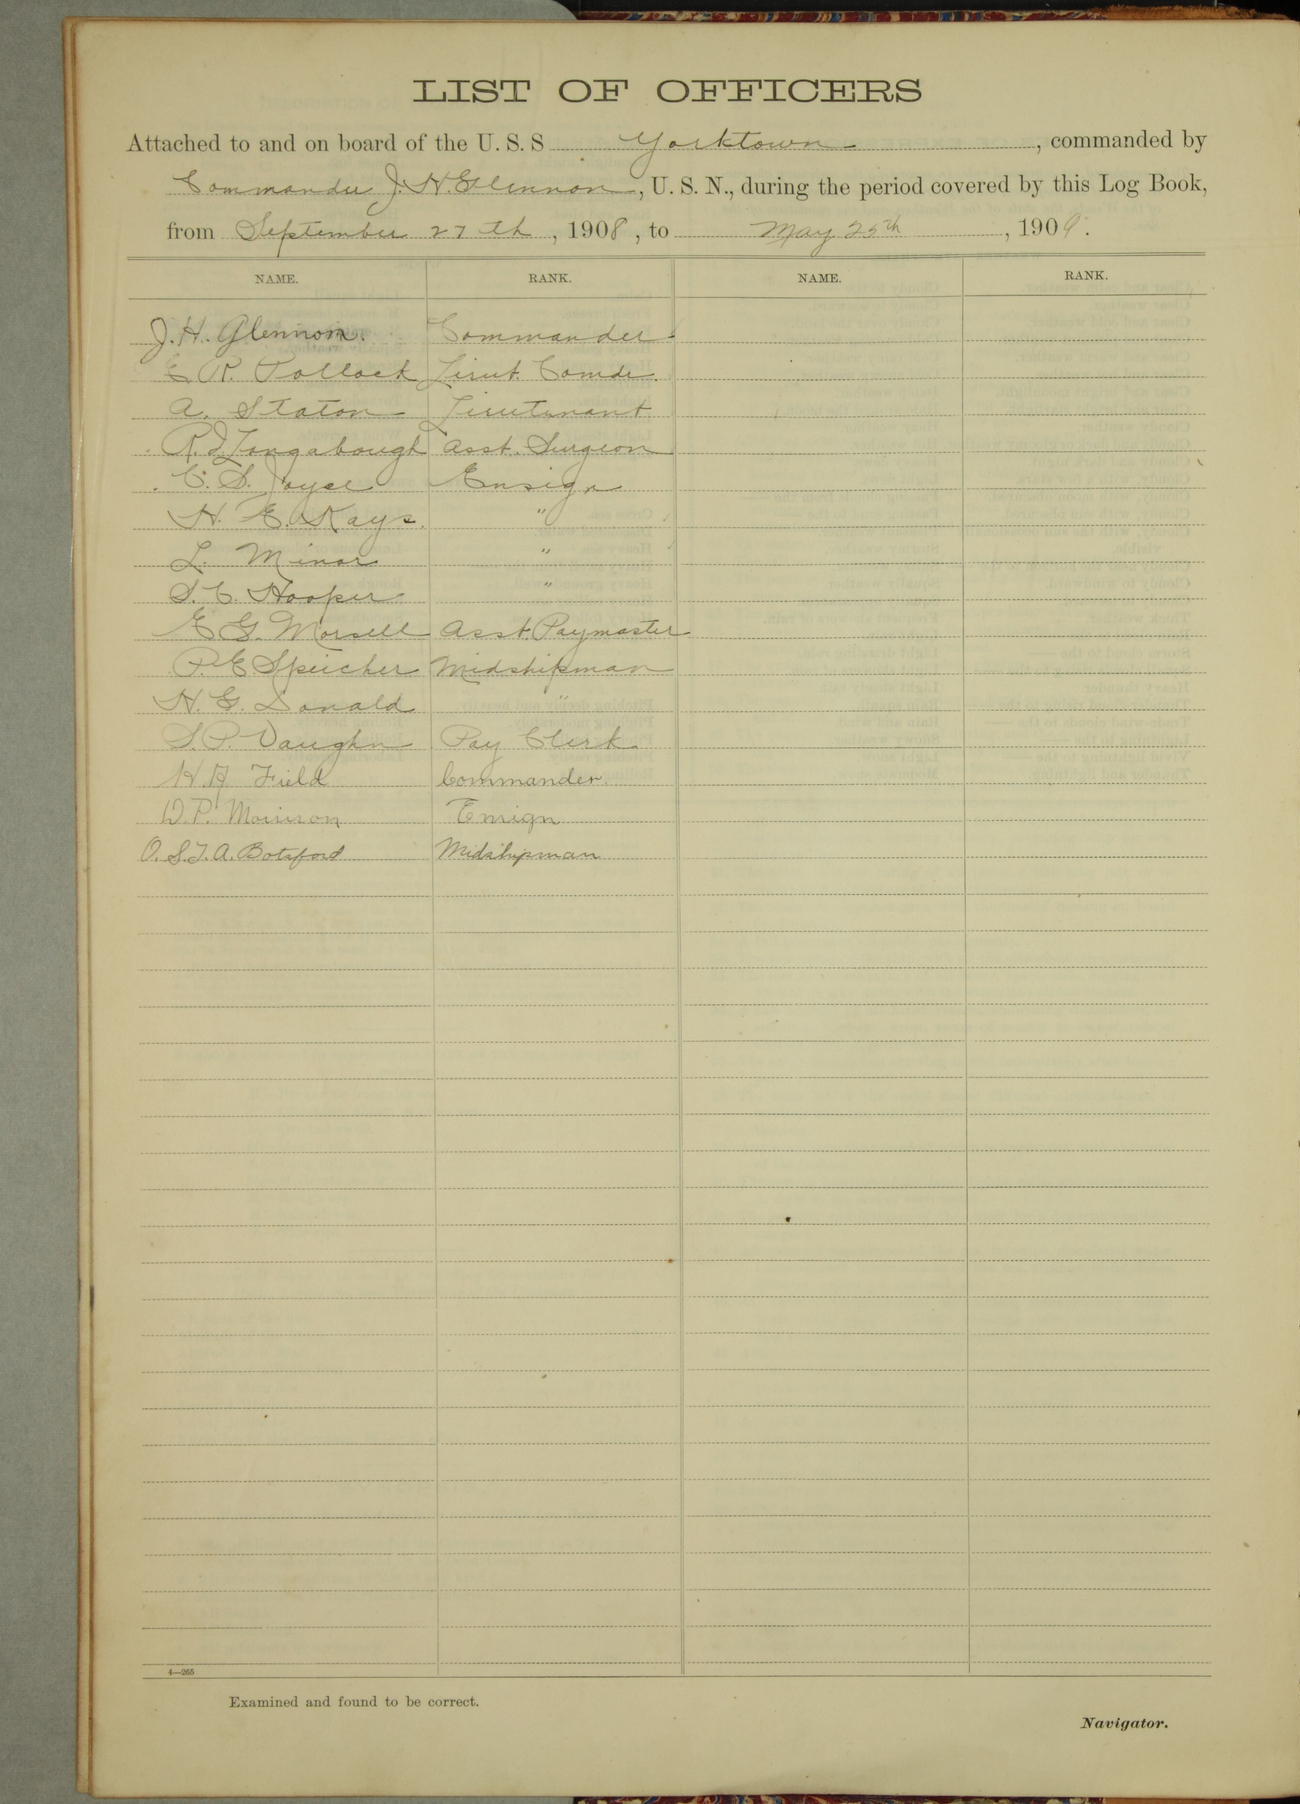 LIST OF OFFICERS
Attached to and on board of the U. S. S Yorktown, commanded by
Commander J. H. Glennon, U. S. N., during the period covered by this Log Book,
from September 27th, 1908, to May 25th, 1909.
NAME. RANK. NAME. RANK.
J. H. Glennon. Commander
E. R. Pollock Lieut. Comdr.
A. Staton Lieutenant
R. I. Longabough Asst. Surgeon
C. S. Joyce Ensign
H. E. Kays. "
L. Minor "
S. C. Hooper "
E. G. Morsell Asst. Paymaster
P. E. Speicher Midshipman
H. G. Donald "
S. P. Vaughn Pay Clerk
H. A. Field Commander.
D. P. Morrison Ensign
O. S. T. A. Botsford Midshipman
4—265
Examined and found to be correct.
Navigator.